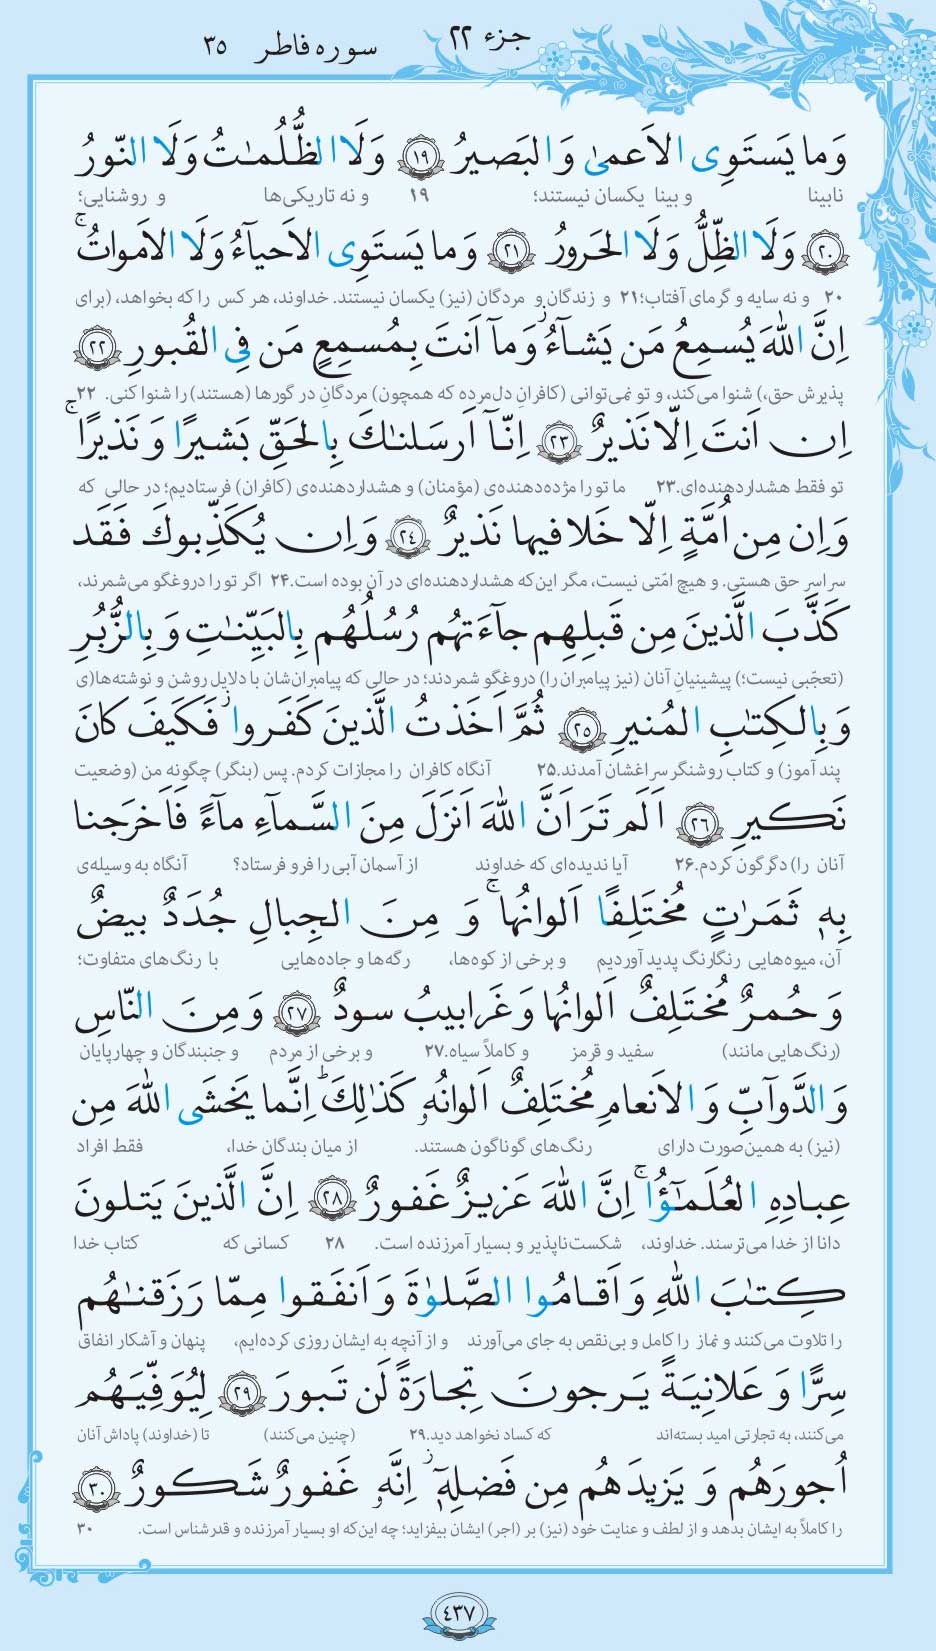 جزء ۲۲
سوره فاطر ۳۵
وَما يَستَوِى الاَعمىٰ وَ البَصيرُ ﴿١٩﴾ وَلَا الظُّلُمـٰتُ وَلَا النّورُ
نابینا و بینا یکسان نیستند؛ ۱۹ و نه تاریکی‌ها و روشنایی؛
﴿٢٠﴾ وَلَا الظِّلُّ وَلَا الحَرورُ ﴿٢١﴾ وَما يَستَوِى الاَحيآءُ وَلَا الاَمواتُ ۚ
۲۰ و نه سایه و گرمای آفتاب؛ ۲۱ و زندگان و مردگان (نیز) یکسان نیستند. خداوند، هر کس را که بخواهد، (برای
اِنَّ اللّٰهَ يُسمِعُ مَن يَشآءُ ۖ وَمآ اَنتَ بِمُسمِعٍ مَن فِى القُبورِ ﴿٢٢﴾
پذیرش حق،) شنوا می‌کند، و تو نمی‌توانی (کافرانِ دل‌مرده که همچون) مردگانِ در گورها (هستند) را شنوا کنی. ۲۲
اِن اَنتَ اِلّا نَذيرٌ ﴿٢٣﴾ اِنّآ اَرسَلنـٰكَ بِالحَقِّ بَشيرًا وَ نَذيرًا ۚ
تو فقط هشداردهنده‌ای. ۲۳ ما تو را مژده‌دهنده‌ی (مؤمنان) و هشداردهنده‌ی (کافران) فرستادیم؛ در حالی که
وَاِن مِن اُمَّةٍ اِلّا خَلا فيها نَذيرٌ ﴿٢٤﴾ وَاِن يُكَذِّبوكَ فَقَد
سراسر حق هستی. و هیچ امّتی نیست، مگر این‌که هشداردهنده‌ای در آن بوده است. ۲۴ اگر تو را دروغگو می‌شمرند،
كَذَّبَ الَّذينَ مِن قَبلِهِم جآءَتهُم رُسُلُهُم بِالبَيِّنـٰتِ وَ بِالزُّبُرِ
(تعجّبی نیست؛) پیشینیانِ آنان (نیز پیامبران را) دروغگو شمردند؛ در حالی که پیامبران‌شان با دلایل روشن و نوشته‌ها(ی
وَ بِالكِتـٰبِ المُنيرِ ﴿٢٥﴾ ثُمَّ اَخَذتُ الَّذينَ كَفَروا ۖ فَكَيفَ كانَ
پند آموز) و کتاب روشنگر سراغشان آمدند. ۲۵ آنگاه کافران را مجازات کردم. پس (بنگر) چگونه من (وضعیت
نَكيرِ ﴿٢٦﴾ اَلَم تَرَ اَنَّ اللّٰهَ اَنزَلَ مِنَ السَّمآءِ مآءً فَاَخرَجنا
آنان را) دگرگون کردم. ۲۶ آیا ندیده‌ای که خداوند از آسمان آبی را فرو فرستاد؟ آنگاه به وسیله‌ی
بِهٖ ثَمَرٰتٍ مُختَلِفًا اَلوانُها ۚ وَ مِنَ الجِبالِ جُدَدٌ بيضٌ
آن، میوه‌هایی رنگارنگ پدید آوردیم و برخی از کوه‌ها، رگه‌ها و جاده‌هایی با رنگ‌های متفاوت؛
وَ حُمرٌ مُختَلِفٌ اَلوانُها وَ غَرابيبُ سودٌ ﴿٢٧﴾ وَ مِنَ النّاسِ
(رنگ‌هایی مانند) سفید و قرمز و کاملاً سیاه. ۲۷ و برخی از مردم و جنبندگان و چهارپایان
وَ الدَّوآبِّ وَ الاَنعامِ مُختَلِفٌ اَلوانُهٗ كَذٰلِكَ ۗ اِنَّما يَخشَى اللّٰهَ مِن
(نیز) به همین‌صورت دارای رنگ‌های گوناگون هستند. از میان بندگان خدا، فقط افراد
عِبادِهِ العُلَمـٰٓؤُا ۚ اِنَّ اللّٰهَ عَزيزٌ غَفورٌ ﴿٢٨﴾ اِنَّ الَّذينَ يَتلونَ
دانا از خدا می‌ترسند. خداوند، شکست‌ناپذیر و بسیار آمرزنده است. ۲۸ کسانی که کتاب خدا
كِتـٰبَ اللّٰهِ وَ اَقامُوا الصَّلوٰةَ وَ اَنفَقوا مِمّا رَزَقنـٰهُم
را تلاوت می‌کنند و نماز را کامل و بی‌نقص به جای می‌آورند و از آنچه به ایشان روزی کرده‌ایم، پنهان و آشکار انفاق
سِرًّا وَ عَلانِيَةً يَرجونَ تِجارَةً لَن تَبورَ ﴿٢٩﴾ لِيُوَفِّيَهُم
می‌کنند، به تجارتی امید بسته‌اند که کساد نخواهد دید. ۲۹ (چنین می‌کنند) تا (خداوند) پاداش آنان
اُجورَهُم وَ يَزيدَهُم مِن فَضلِهٖٓ ۚ اِنَّهٗ غَفورٌ شَكورٌ ﴿٣٠﴾
را کاملاً به ایشان بدهد و از لطف و عنایت خود (نیز) بر (اجر) ایشان بیفزاید؛ چه این‌که او بسیار آمرزنده و قدرشناس است. ۳۰
۴۳۷